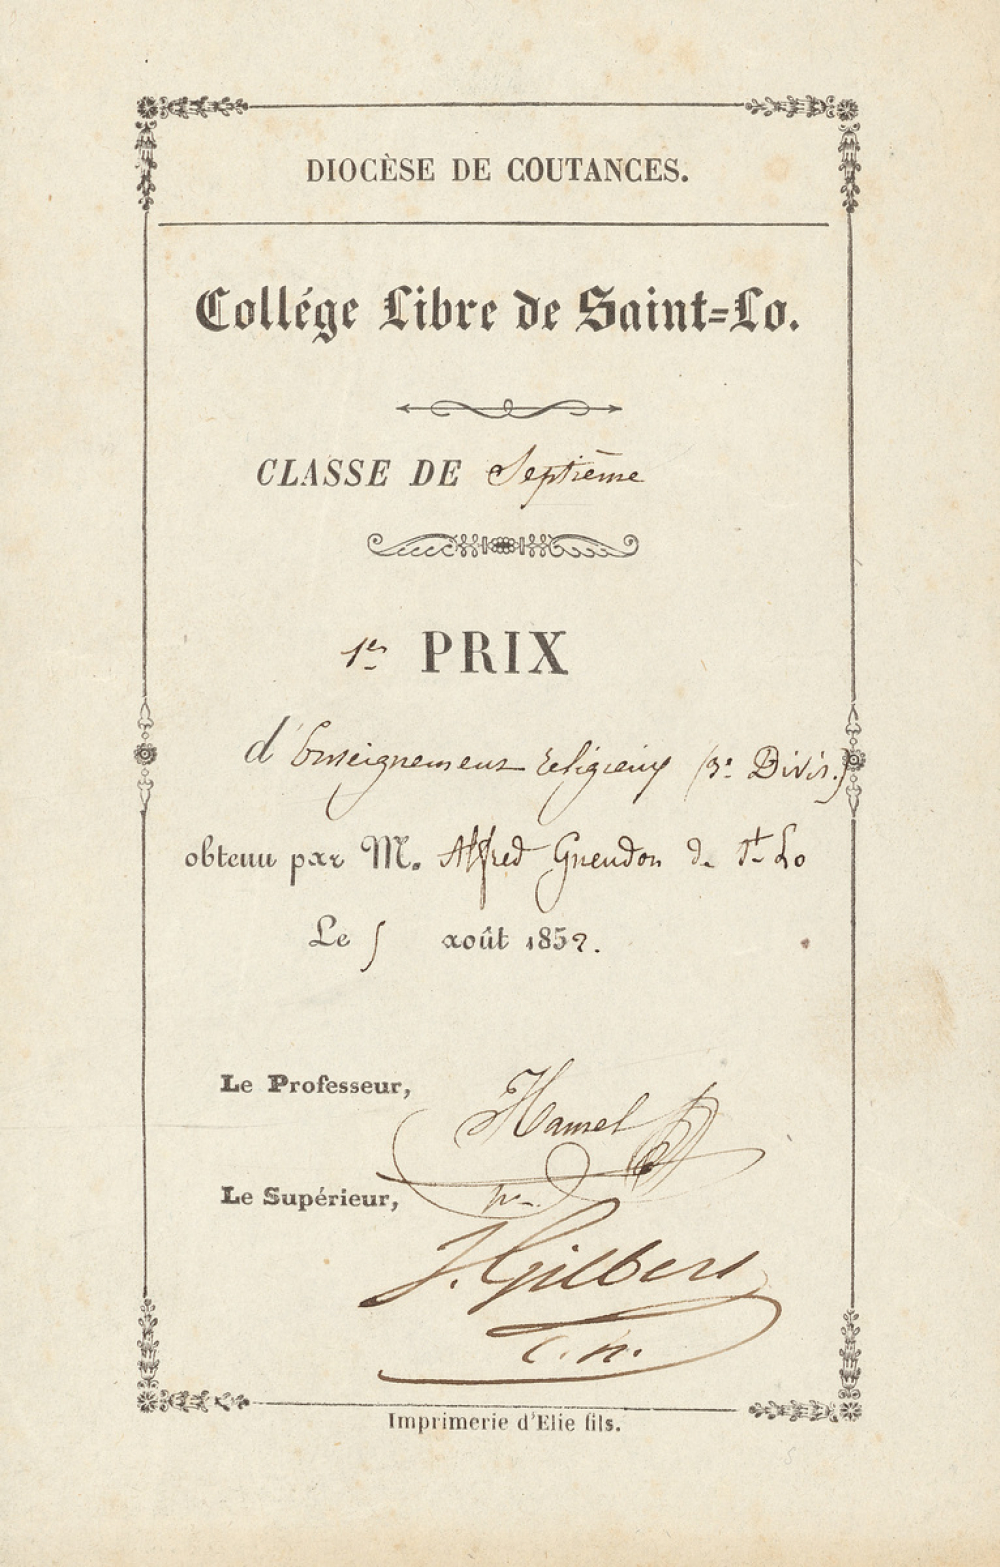 DIOCÈSE DE COUTANCES.
Collége Libre de Saint=Lo.
CLASSE DE Septième
1er PRIX
d'Enseignement religieux (3e Divis.)
obtenu par M. Alfred Gueudon de St Lo
Le 5 août 1852.
Le Professeur,
Hamel
Le Supérieur,
J. Gilbert
Imprimerie d'Elie fils.